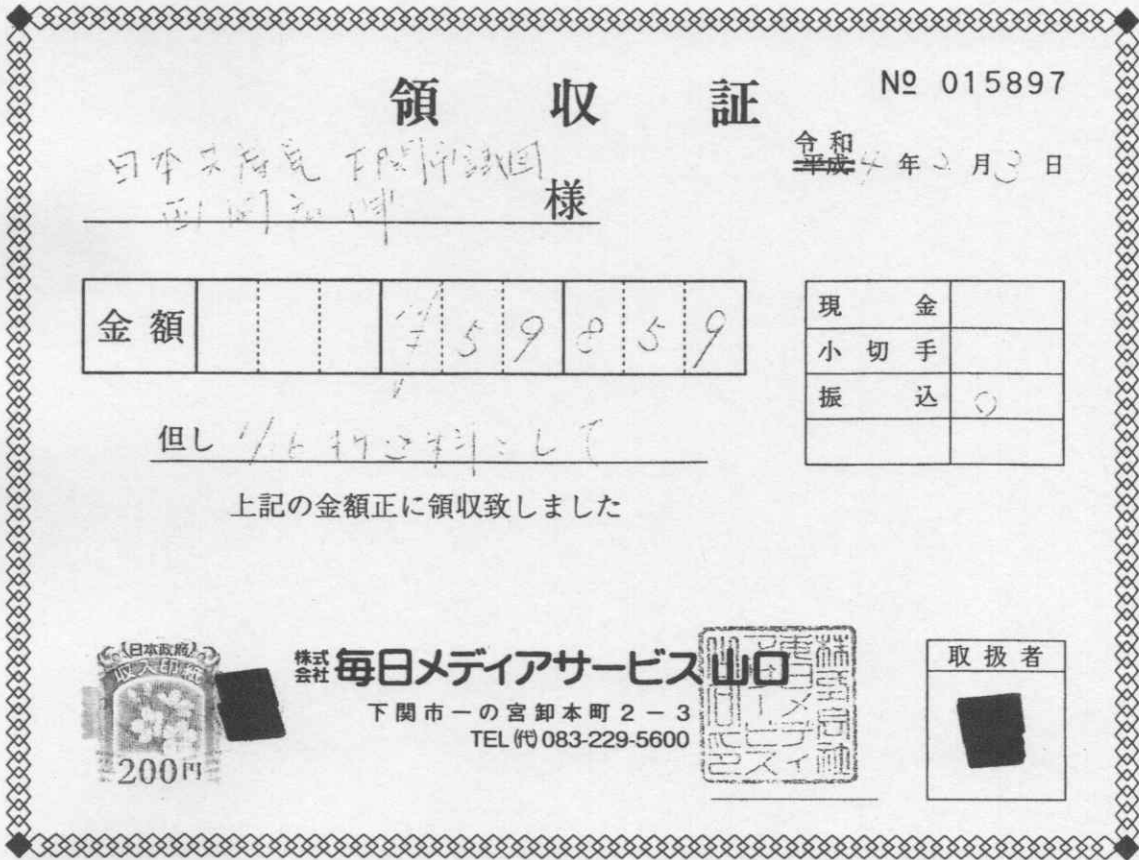 領 収 証
№ 015897
令和
平成 4 年 2 月 3 日
日本共産党 下関市議団
様
金額 ¥ 5 9 8 5 9
現 金
小 切 手
振 込 ○
但し 1/16 折込料として
上記の金額正に領収致しました
日本政府
収入印紙
200円
株式会社 毎日メディアサービス山口
下関市一の宮卸本町2-3
TEL(代)083-229-5600
取扱者